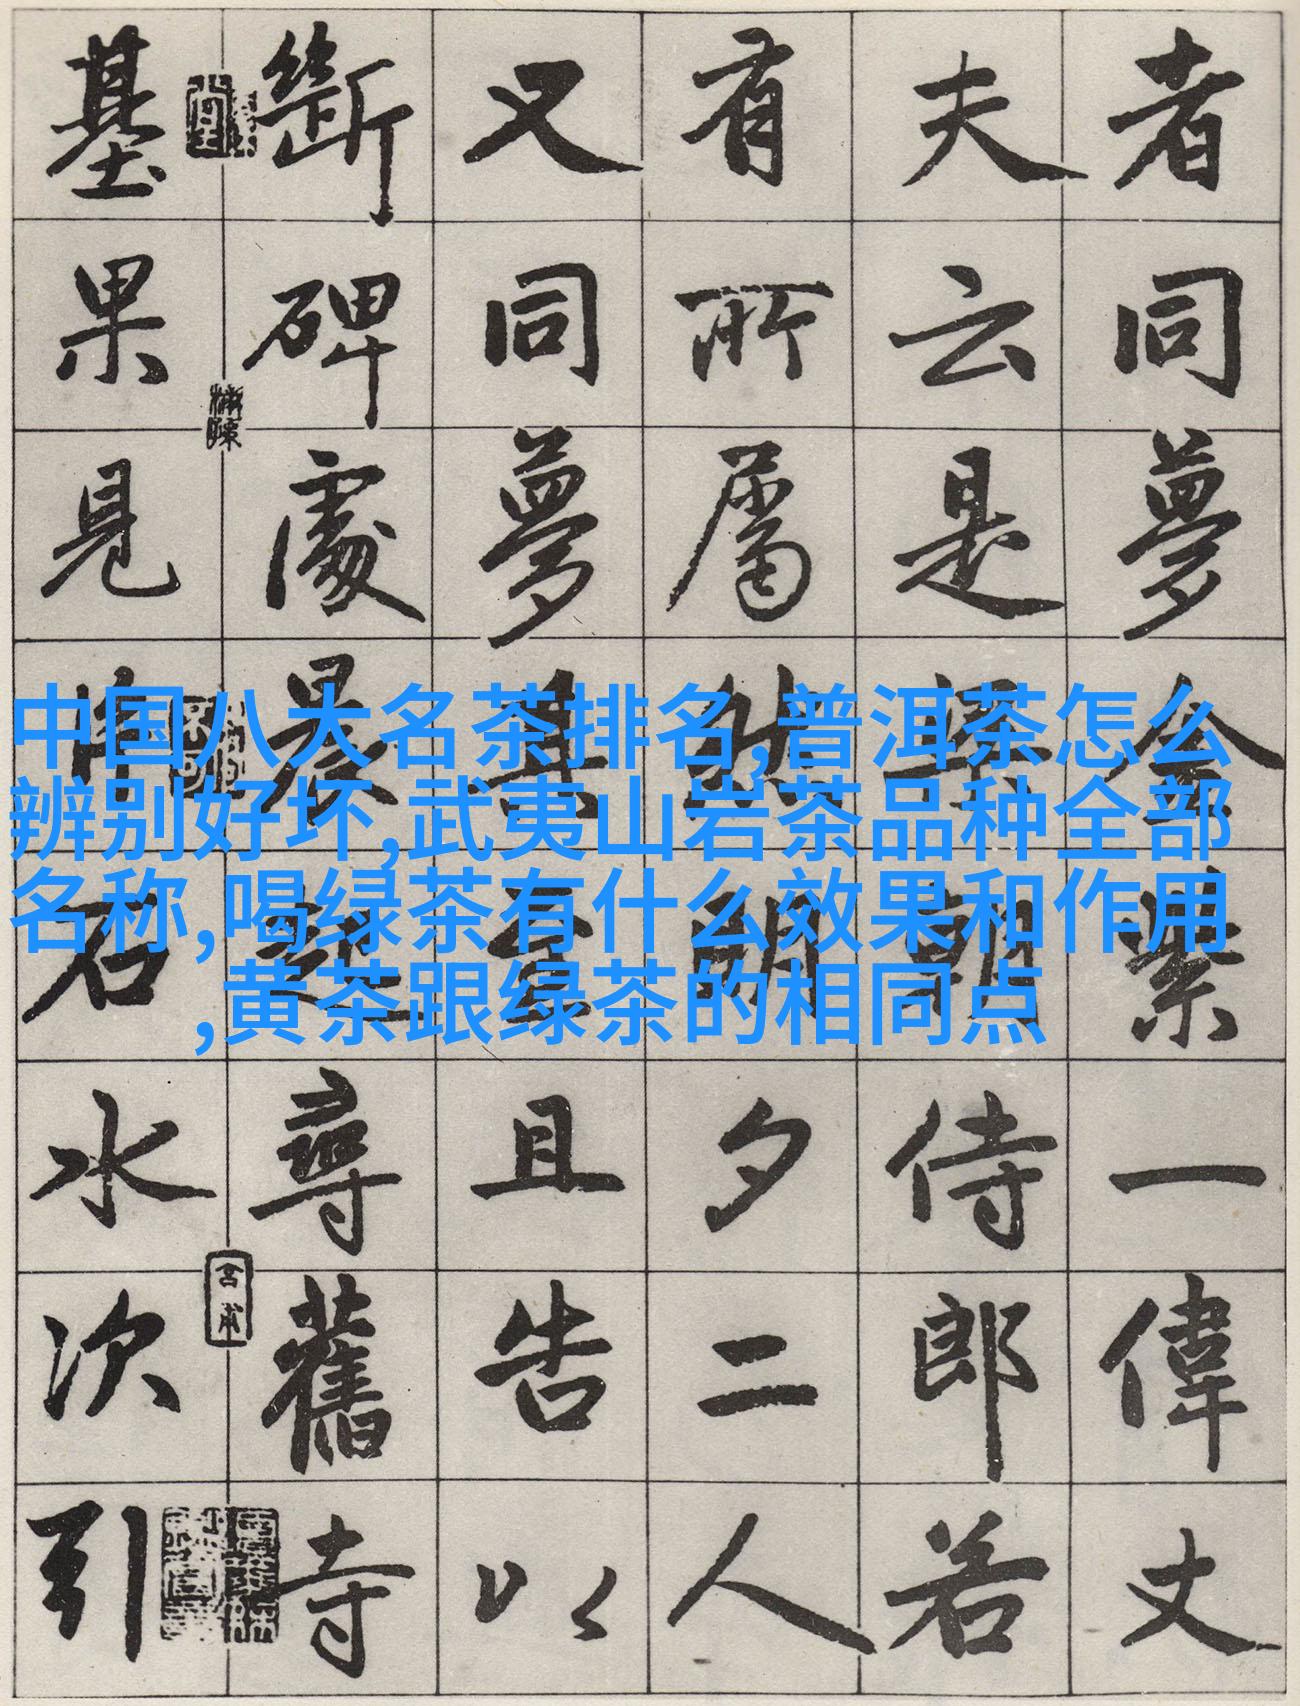 者同夢金紫一偉丈
夫云是朝侍郎若
有所屬然明夕二人
又同夢其言且告以
斷碑處晨起尋舊寺
基果見片石水次引
中国八大名茶排名,普洱茶怎么
辨别好坏,武夷山岩茶品种全部
名称,喝绿茶有什么效果和作用
,黄茶跟绿茶的相同点